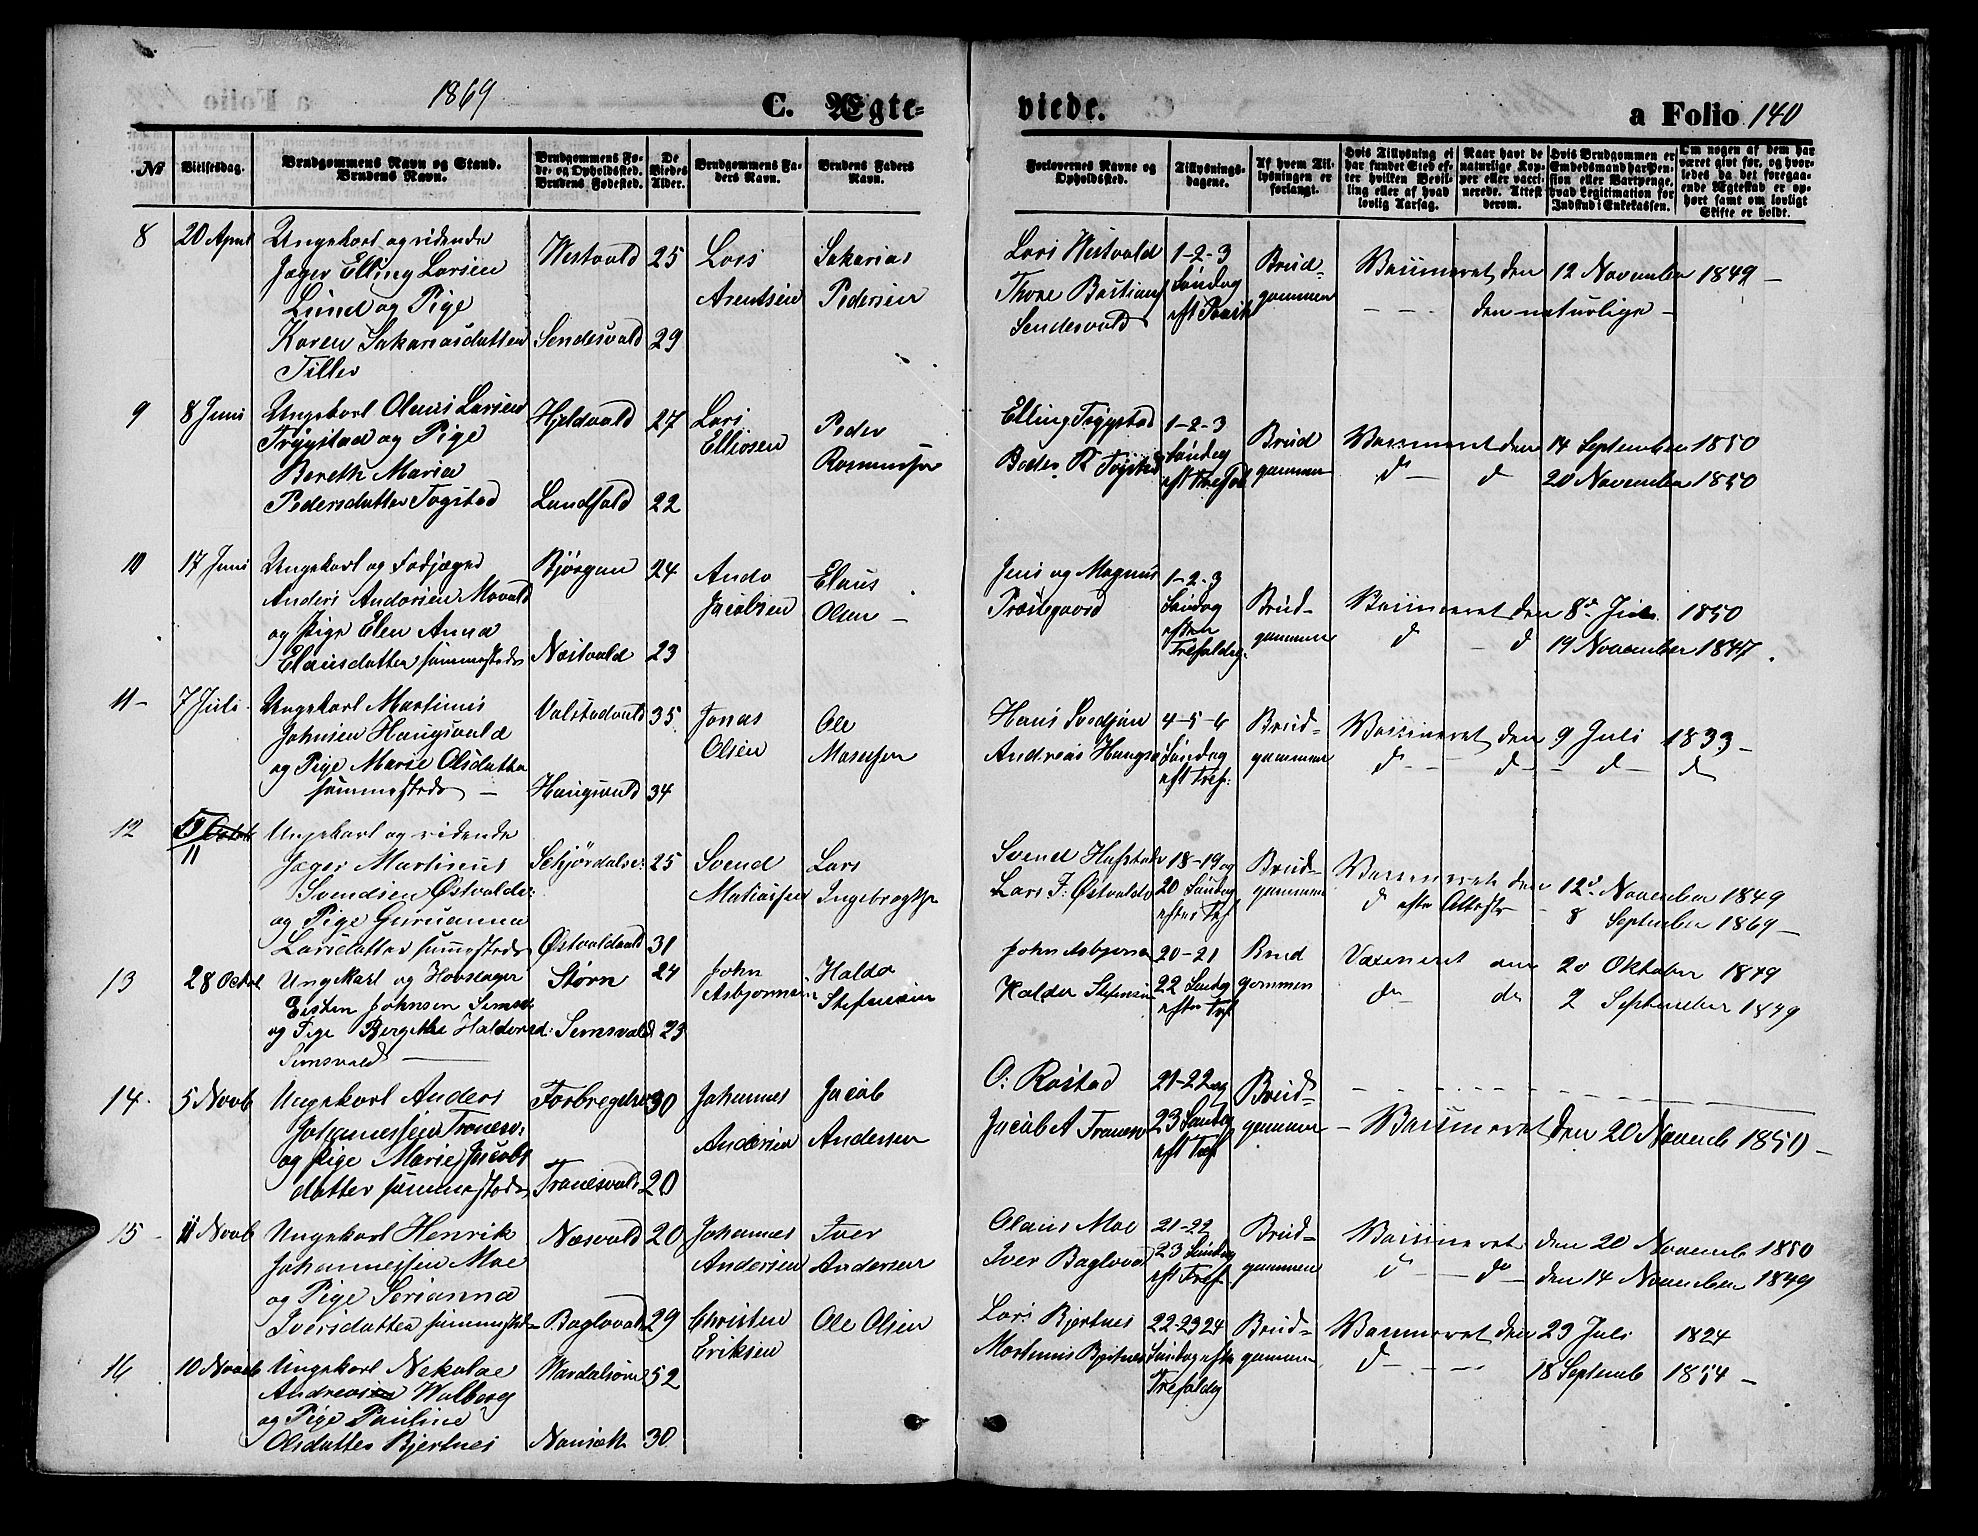 1869
C. Ægte-
viede.
a Folio 140
№
Vielsesdag.
Brudgommens Navn og Stand.
Brudens Navn.
Brudgommens Fø-
de- og Opholdssted.
Brudens Fødested.
De
Viedes
Alder.
Brudgommens Fa-
ders Navn.
Brudens Faders
Navn.
Forlovernes Navne og
Opholdssted.
Tillysnings-
dagene.
Af hvem Til-
lysningen er
forlangt.
Hvis Tillysning ei
har fundet Sted ef-
ter hvilken Bevil-
ling eller af hvad
lovlig Aarsag.
Naar havt de
naturlige Kop-
per eller vacci-
nerede. Attest
derom.
Hvis Brudgommen er
Embedsmand har Pen-
sion eller Vartpenge,
hvad Legitimation for
Indskud i Enkekassen.
Om nogen af dem har
været givt før, og hvor-
ledes da det foregaa-
ende Ægteskab er op-
hørt samt om lovligt
Skifte er holdt.
8 20 April Ungekarl og ridende
Jæger Elling Larsen
Lund og Pige
Karen Sakariasdatter
Tiller
Westvald 25
Sendesvald 29
Lars
Arentsen
Sakarias
Pedersen
Lars Westvald
Thore Bastian
Sendesvald
1-2-3
Søndag
eft Paask
Brud-
gommen
Vaccineret den 12 November 1849 -
den naturlige -
9 8 Juni Ungekarl Olaus Larsen
Trøgstad og Pige
Bereth Maria
Pedersdatter Togstad
Hjeldvald 27
Lundfald 22
Lars
Ellevsen
Peder
Rasmussen
Elling Togstad
Peder R Togstad
1-2-3
Søndag
eft Trefol
Brud
gommen
Vaccineret den 14 September 1850
d - d 20 November 1850
10 17 Juni Ungekarl og Fodjæger
Anders Andorsen Movald
og Pige Elen Anna
Elausdatter sammesteds
Bjørgan 24
Næstvald 23
Ando
Jacobsen
Elaus
Olsen -
Jens og Magnus
Præstegaard
1-2-3
Søndag
efter
Trefoldig.
Brud-
gommen
Vaccineret den 8de Juli 1850
d - d 19 November 1847.
11 - 7 Juli Ungekarl Martinus
Johnsen Haugsvald
og Pige Marie Olsdatter
sammesteds -
Valstadvald 35
Haugsvald 34
Jonas
Olsen
Ole
Masessen
Hans Svedjan
Andreas Haugs
4-5-6
Søndag
eft Tref:
Brud-
gommen
Vaccineret den 9 Juli 1833 -
d - d - d - d
12
11
Ungekarl og ridende
Jæger Martinus
Svendsen Østvalds:
og Pige Guruanna
Larsdatter sammesteds
Schjørdalsv: 25
Østvoldvald 31
Svend
Matiassen
Lars
Ingebregtsen
Svend Hafstad
Lars I: Østvalds
18-19 og
20 Søndag
efter Tref
Brud-
gommen
Vaccineret den 12te November 1849
d efter Attest 8 September 1869 -
13 28 Octbr Ungekarl og Hovslager
Eisten Johnsen Sems:
og Pige Bergithe Haldorsd:
Semsvald
Størn 24
Semsvald 23
John
Asbjørnsen
Haldo
Stefensen
John Asbjørnsen
Haldor Stefensen
20-21
22 Søndag
efter Tref
Brud
gommen
Vaxeneret den 20 Oktober 1849
do - do 2 September 1849
14. 5 Novb Ungekarl Anders
Johannessen Tranesv:
og Pige Marie Jacobs
datter sammesteds
Forbregdsv 30
Tranesvald 20
Johannes
Andersen
Jacob
Andersen
O: Rostad
Jacob A Tranesv
21-22 og
23 Søndag
eft Tref
Brud-
gommen
- Vaccineret den 20 Novemb 1850 -
15 - 11 Novb Ungekarl Henrik
Johannessen Moe
og Pige Serianna
Iversdatter sammesteds
Næsvald 20
Baglovald 29
Johannes
Andersen
Iver
Andersen
Olaus Moe
Iver Baglovald
21-22
23 Søndag
eft Tref
Brud-
gommen
Vaccineret den 20 Novemb 1850
d - do - den 14 November 1849
16 10 Novemb Ungekarl Nekolae
Andreasen Walberg
og Pige Pauline
Olsdatter Bjertnes
Værdalsøren 52
Nonsæth 30
Christen
Eriksen
Ole Olsen
Lars Bjertnes
Martenus Bjertnes
22-23 24
Søndag efter
Trefoldig
Brud-
gommen
Vaccineret den 23 Juli 1824
d - - - 18 Septemb 1854 -